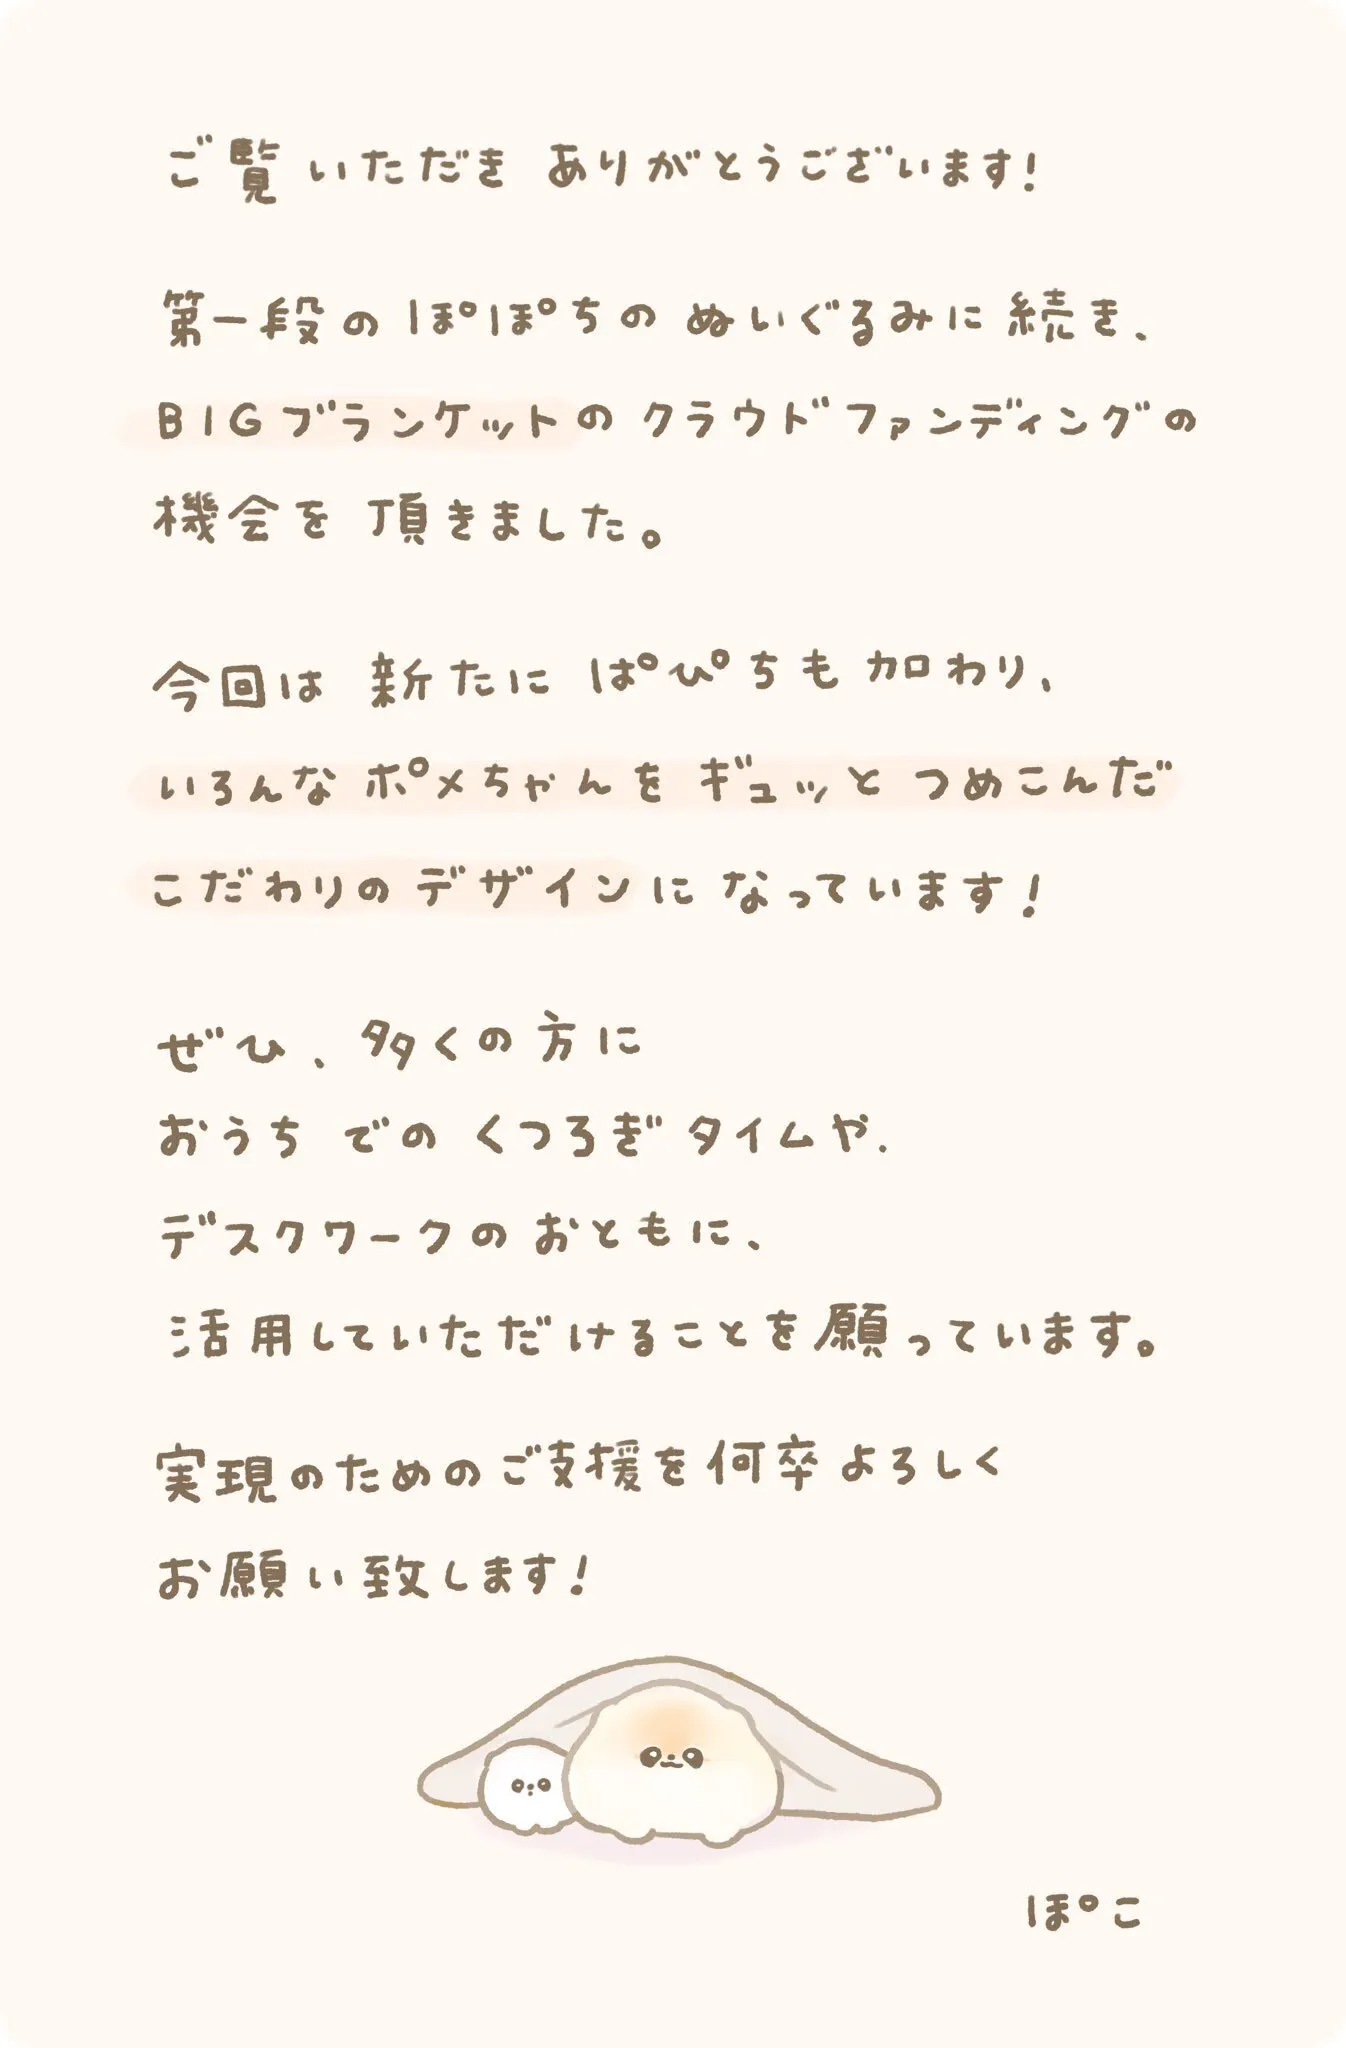 ご覧いただき ありがとうございます!
第一段の ぽぽちの ぬいぐるみに 続き、
BIGブランケットの クラウドファンディングの
機会を 頂きました。
今回は 新たに ぱぴちも 加わり、
いろんな ポメちゃんを ギュッと つめこんだ
こだわりの デザインに なっています!
ぜひ、多くの方に
おうち での くつろぎ タイムや、
デスクワークの おともに、
活用していただけることを 願っています。
実現のためのご支援を 何卒 よろしく
お願い致します!
ぽこ